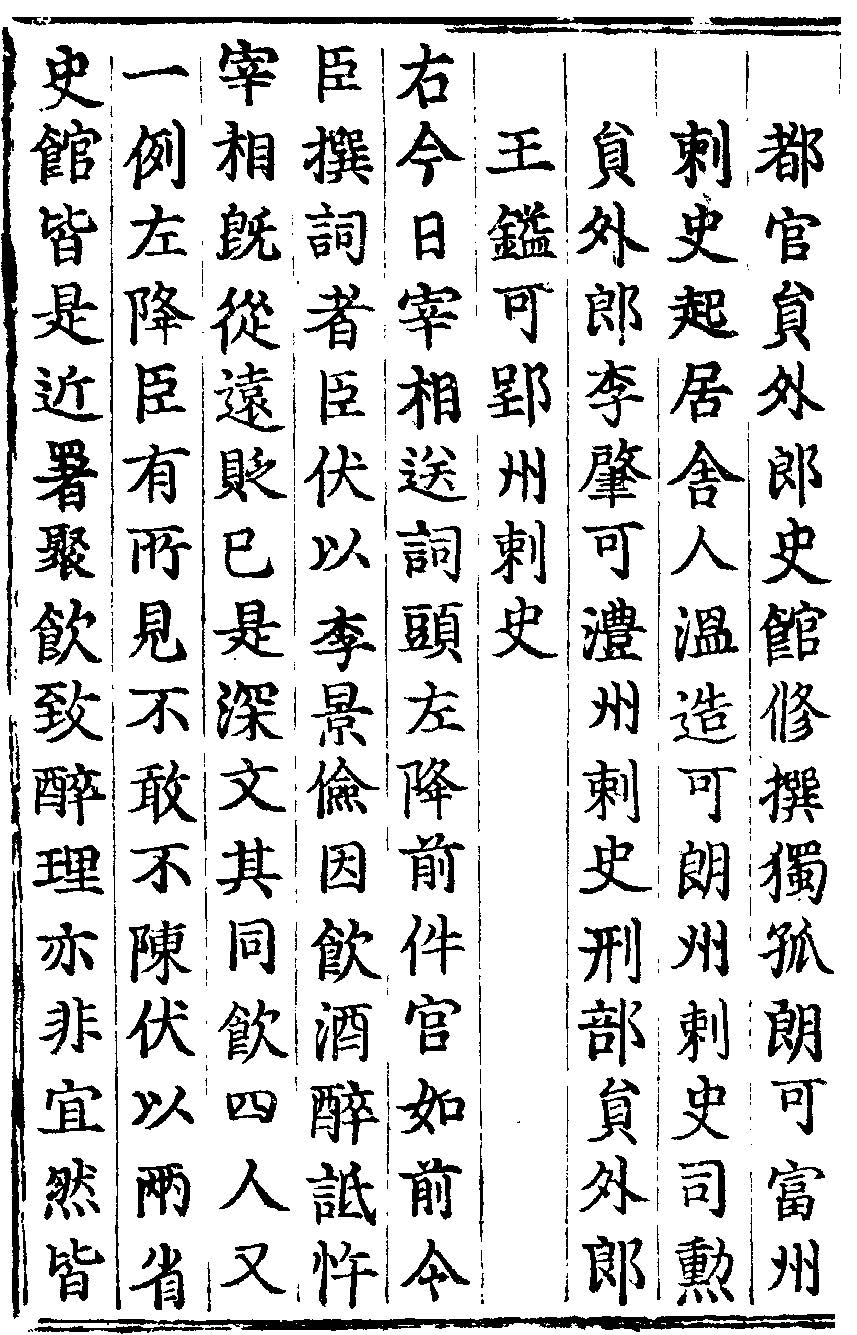 都官貟外郎史館修撰獨孤朗可富州
刺史起居舎人溫造可朗州刺史司勲
貟外郎李肇可澧州刺史刑部貟外郎
王鑑可郢州刺史
右今日宰相送詞頭左降前件官如前令
臣撰詞者臣伏以李景儉因飲酒醉詆忤
宰相旣從遠貶已是深文其同飲四人又
一例左降臣有所見不敢不陳伏以兩省
史館皆是近署聚飲致醉理亦非宜然皆